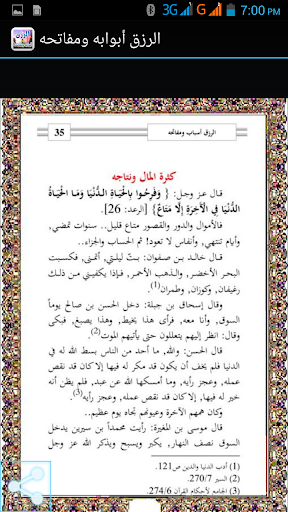 3G G 7:00 PM
الرزق أبوابه ومفاتحه
الرزق أسباب ومفاتحه
35
كثرة المال ونتاجه
قال عز وجل: { وَفَرِحُوا بِالْحَيَاةِ الدُّنْيَا وَمَا الْحَيَاةُ
الدُّنْيَا فِي الْآخِرَةِ إِلَّا مَتَاعٌ} [الرعد: 26].
فالأموال والدور والقصور متاع قليل.. سنوات تمضي،
وأيام تنتهي، وأنفاس لا تعود! ثم الحساب والجزاء..
قال خالد بن صفوان: بتّ ليلتي أتمنى، فكسبت
البحر الأخضر، والذهب الأحمر، فإذا يكفيني من ذلك
رغيفان، وكوزان، وطمران(1).
وقال إسحاق بن جبلة: دخل الحسن بن صالح يوماً
السوق، وأنا معه، فرأى هذا يخيط، وهذا يصبغ، فبكى
وقال: انظر إليهم يتعللون حتى يأتيهم الموت(2).
قال الحسن: والله، ما أحد من الناس بسط الله له في
الدنيا فلم يخف أن يكون قد مكر له فيها إلا كان قد نقص
عمله، وعجز رأيه، وما أمسكها الله عن عبد، فلم يظن أنه
خير له فيها، إلا كان قد نقص عمله، وعجز رأيه(3).
وكان همهم الآخرة وعيونهم تجاه يوم عظيم..
قال موسى بن المغيرة: رأيت محمداً بن سيرين يدخل
السوق نصف النهار، يكبر ويسبح ويذكر الله عز وجل
(1) أدب الدنيا والدين ص121.
(2) السير 370/7.
(3) الجامع لأحكام القرآن 274/6.